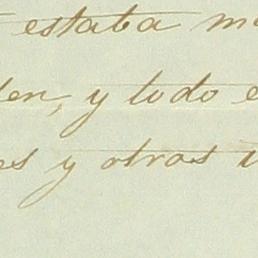 estaba
den, y todo
es y otros